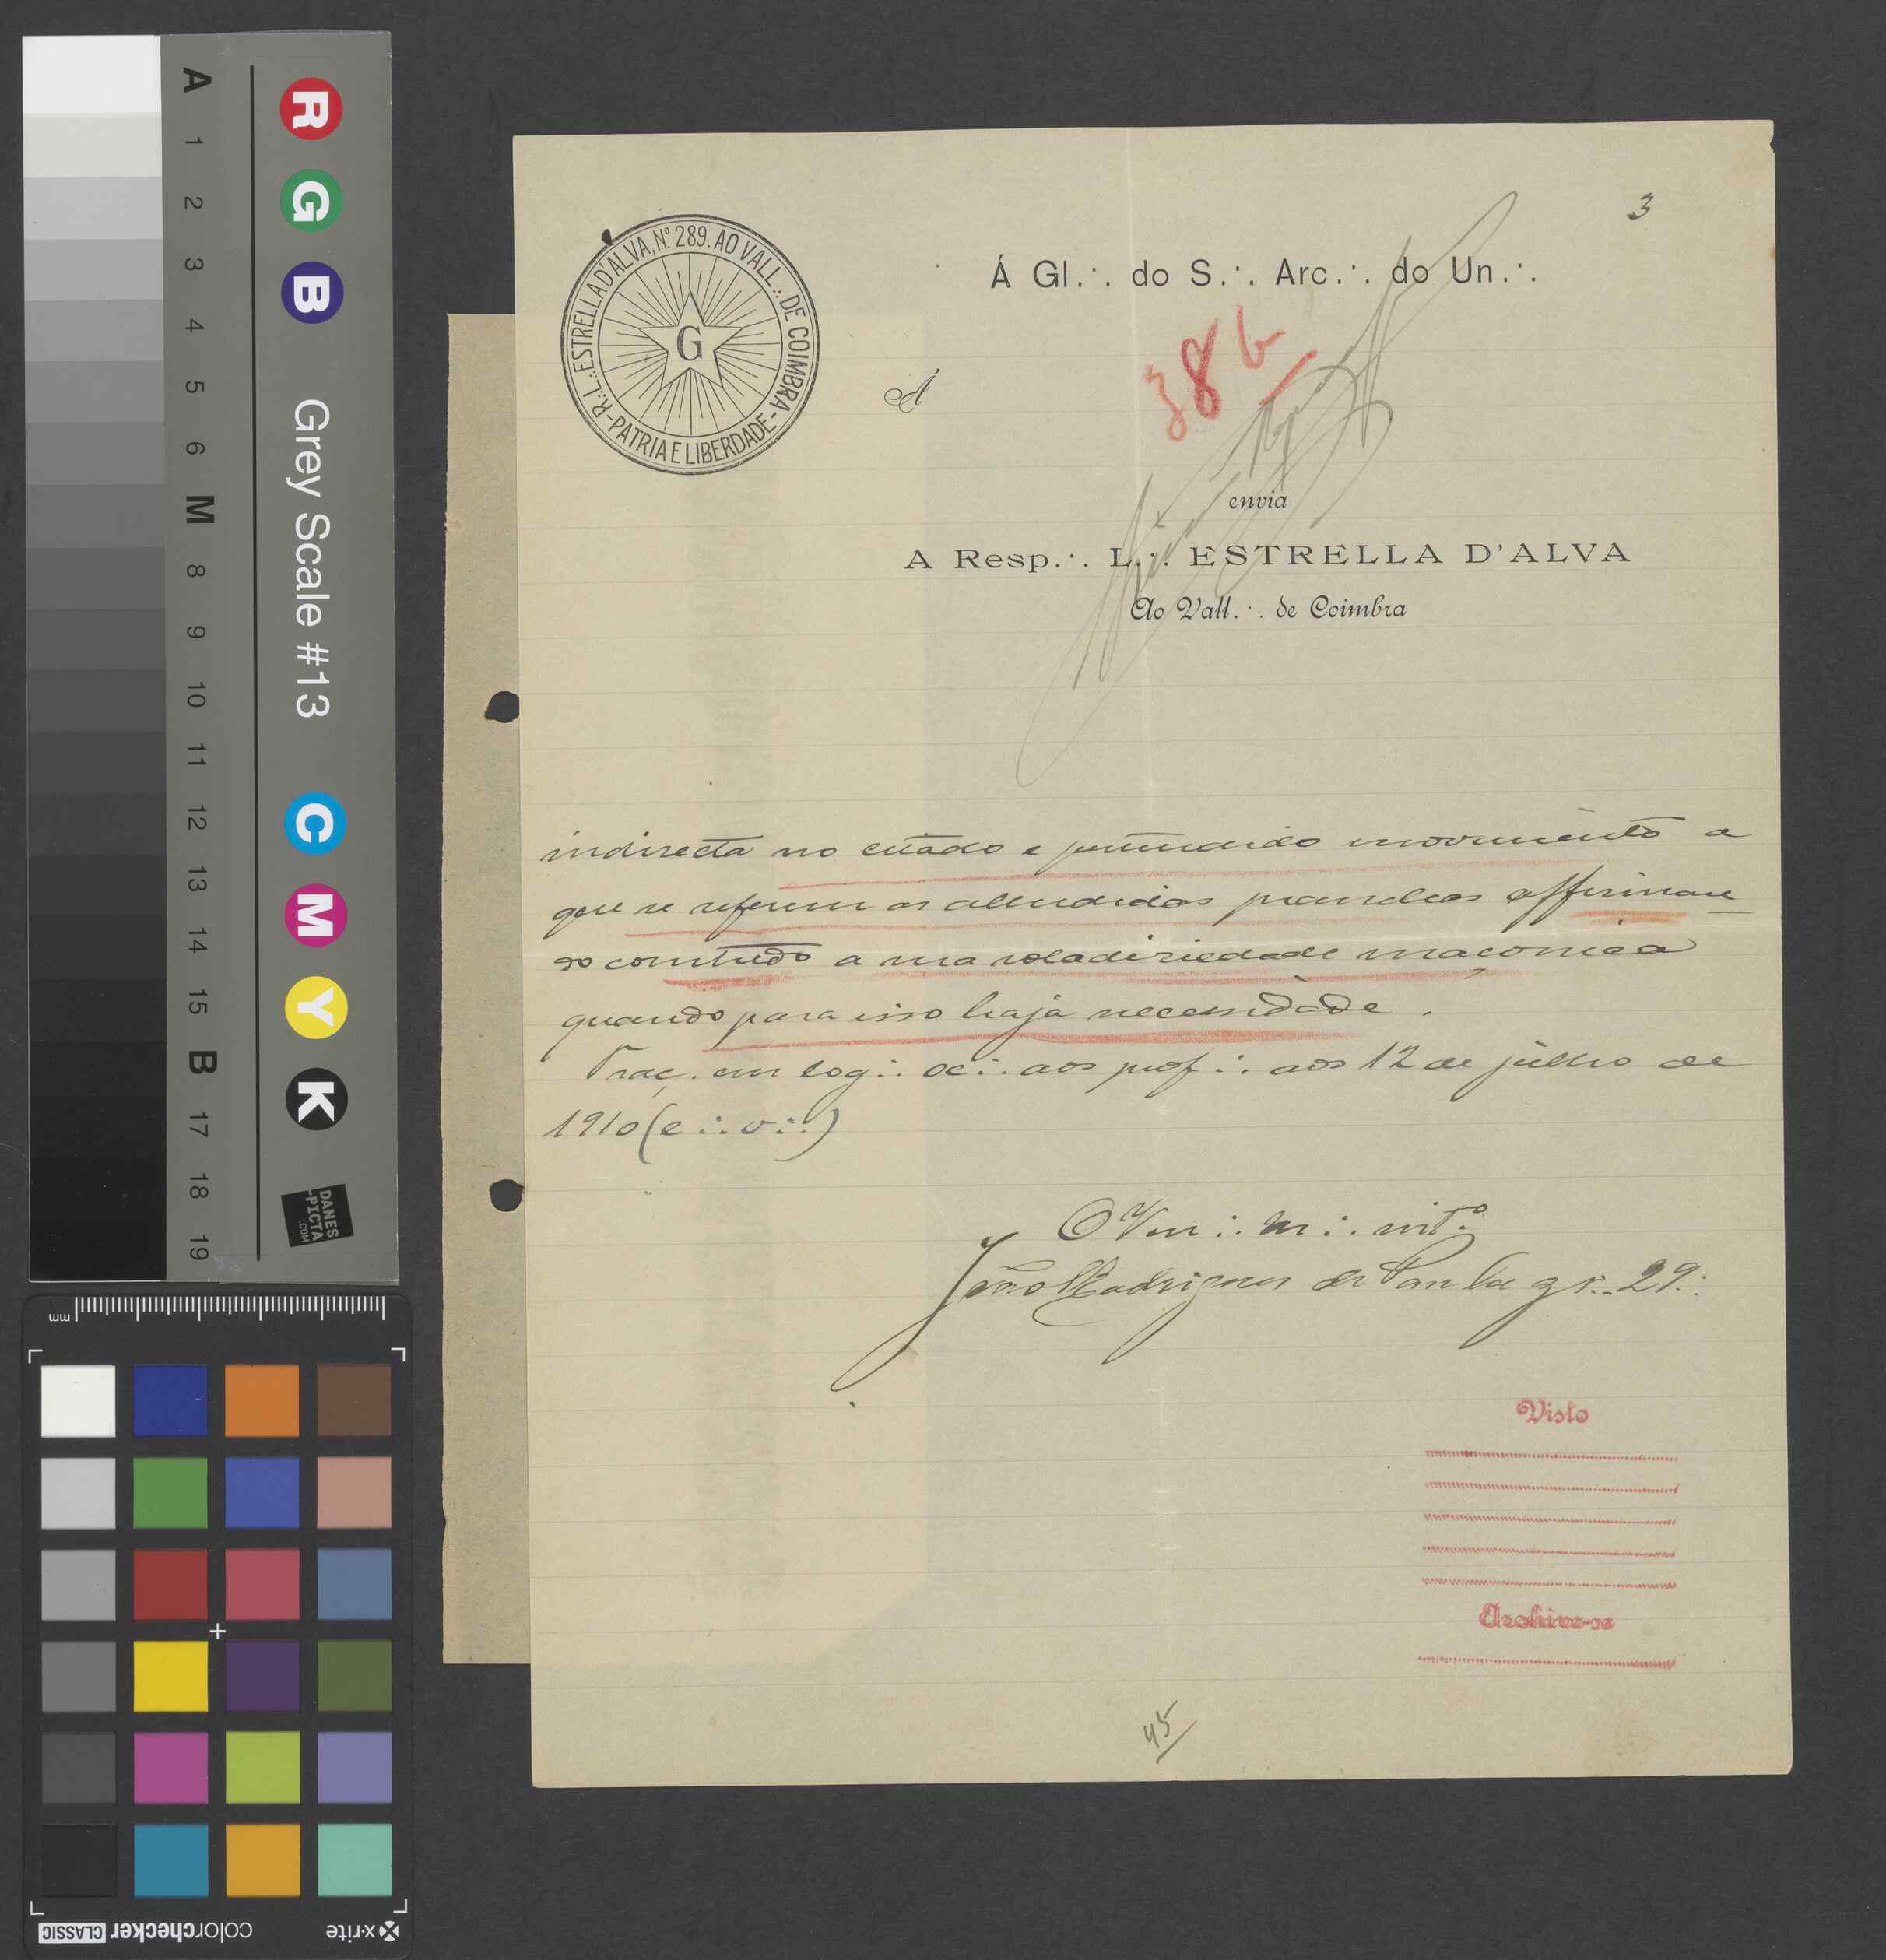 3
R∴L∴ESTRELLA D'ALVA, Nº 289. AO VALL∴ DE COIMBRA
-PATRIA E LIBERDADE-
G
Á Gl∴ do S∴ Arc∴ do Un∴
386
Á
envia
A Resp∴ L∴ ESTRELLA D'ALVA
Ao Vall∴ de Coimbra
indirecta no citado e movimento a
que se referem as alludidas pranchas affirman
do comtudo a sua solidariedade maçonica
quando para isso haja necessidade.
Traç. em log∴ oc∴ aos prof∴ aos 12 de julho de
1910 (e∴v∴)
O Ven∴ m∴ int.º
João Rodrigues de gr∴ 29∴
Visto
Archive-se
45
A 1 2 3 4 5 6 M 8 9 10 11 12 13 14 15 B 17 18 19
R G B Grey Scale #13 C M Y K
DANES
-PICTA
.COM
mm
x-rite colorchecker CLASSIC